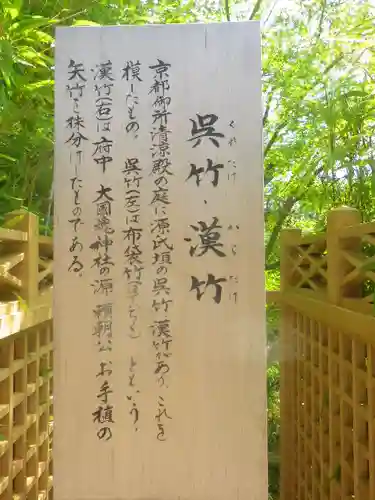 呉竹・漢竹
くれたけ からたけ
京都御所清涼殿の庭に源氏垣の呉竹 漢竹があり、これを
模したもの。 呉竹(左)は布袋竹( )ともいう。
漢竹(右)は府中 大國魂神社の源 頼朝公 お手植の
矢竹を株分けしたものである。